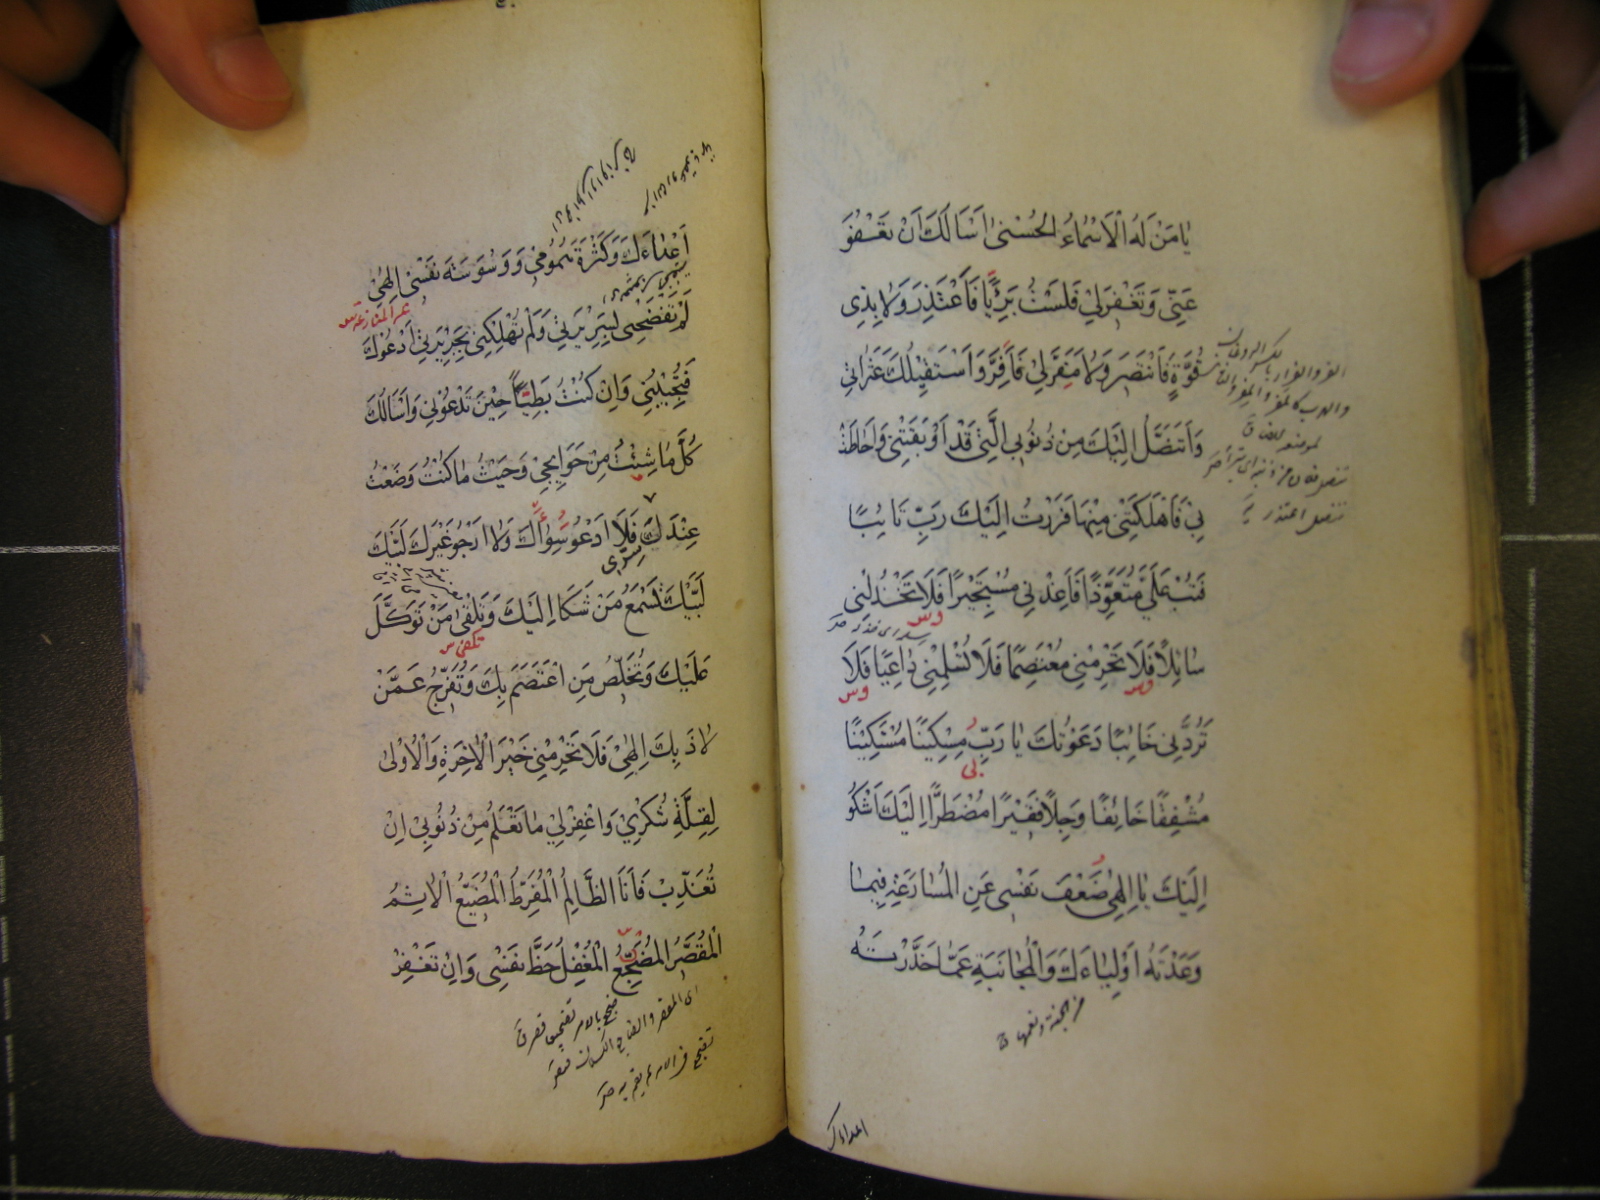 يا مَنْ لَهُ الْاَسْمٰاءُ الْحُسْنىٰ اَسْاَلُكَ اَنْ تَعْفُوَ
عَنّى وَتَغْفِرَلِي فَلَسْتُ بَرِيئًا فَاَعْتَذِرَ وَلاٰ بِذِى
قُوَّةٍ فَاَنْتَصِرَ وَلاٰ مَفَرَّلِي فَاَفِرَّ وَاَسْتَقِيلُكَ عَثَرٰاتِي
وَاَتَنَصَّلُ اِلَيْكَ مِنْ ذُنُوبِي الَّتِي قَدْ اَوْبَقَتْنِي وَاَحٰاطَتْ
بِي فَاَهْلَكَتْنِي مِنْهٰا فَرَرْتُ اِلَيْكَ رَبِّ تٰائِبًا
فَتُبْ عَلَيَّ مُتَعَوِّذًا فَاَعِذْنِي مُسْتَجِيرًا فَلاٰ تَخْذُلْنِي
سٰائِلاً فَلاٰ تَحْرِمْنِي مُعْتَصِمًا فَلاٰ تُسْلِمْنِي دٰاعِيًا فَلاٰ
تَرُدَّنِي خٰائِبًا دَعَوْتُكَ يٰا رَبِّ مِسْكِينًا مُسْتَكِينًا
مُشْفِقًا خٰائِفًا وَجِلاً فَقِيرًا مُضْطَرًّا اِلَيْكَ اَشْكُو
اِلَيْكَ يٰا اِلٰهِي ضَعْفَ نَفْسِى عَنِ الْمُسٰارَعَةِ فِيمٰا
وَعَدْتَهُ اَوْلِيٰاءَكَ وَالْمُجٰانَبَةِ عَمّٰا حَذَّرْتَهُ
من الجنة ونعيمها
اعداءك
اَعْدٰاءَكَ وَكَثْرَةَ هُمُومِي وَوَسْوَسَةَ نَفْسِى اِلٰهِي
لَمْ تَفْضَحْنِى بِسَرِيرَتِي وَلَمْ تُهْلِكْنِى بِجَرِيرَتِي اَدْعُوكَ
فَتُجِيبُنِي وَاِنْ كُنْتُ بَطِيئًا حِينَ تَدْعُونِي وَاَسْاَلُكَ
كُلَّ مٰا شِئْتُ مِنْ حَوٰائِجِي وَحَيْثُ مٰا كُنْتُ وَضَعْتُ
عِنْدَكَ سِرِّى فَلاٰ اَدْعُو سِوٰاكَ وَلاٰ اَرْجُو غَيْرَكَ لَبَّيْكَ
لَبَّيْكَ تَسْمَعُ مَنْ شَكٰا اِلَيْكَ وَتَلْقىٰ مَنْ تَوَكَّلَ
عَلَيْكَ وَتُخَلِّصُ مَنِ اعْتَصَمَ بِكَ وَتُفَرِّجُ عَمَّنْ
لاٰذَ بِكَ اِلٰهِي فَلاٰ تَحْرِمْنِي خَيْرَ الْاٰخِرَةِ وَالْاُولىٰ
لِقِلَّةِ شُكْرِي وَاغْفِرْلِي مٰا تَعْلَمُ مِنْ ذُنُوبِي اِنْ
تُعَذِّبْ فَاَنَا الظّٰالِمُ الْمُفَرِّطُ الْمُضَيِّعُ الْاٰثِمُ
الْمُقَصِّرُ الْمُضَجِّعُ الْمُغْفِلُ حَظَّ نَفْسِى وَاِنْ تَغْفِرْ